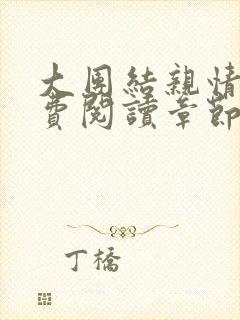 大團結親情
費閱讀章節
丁橋